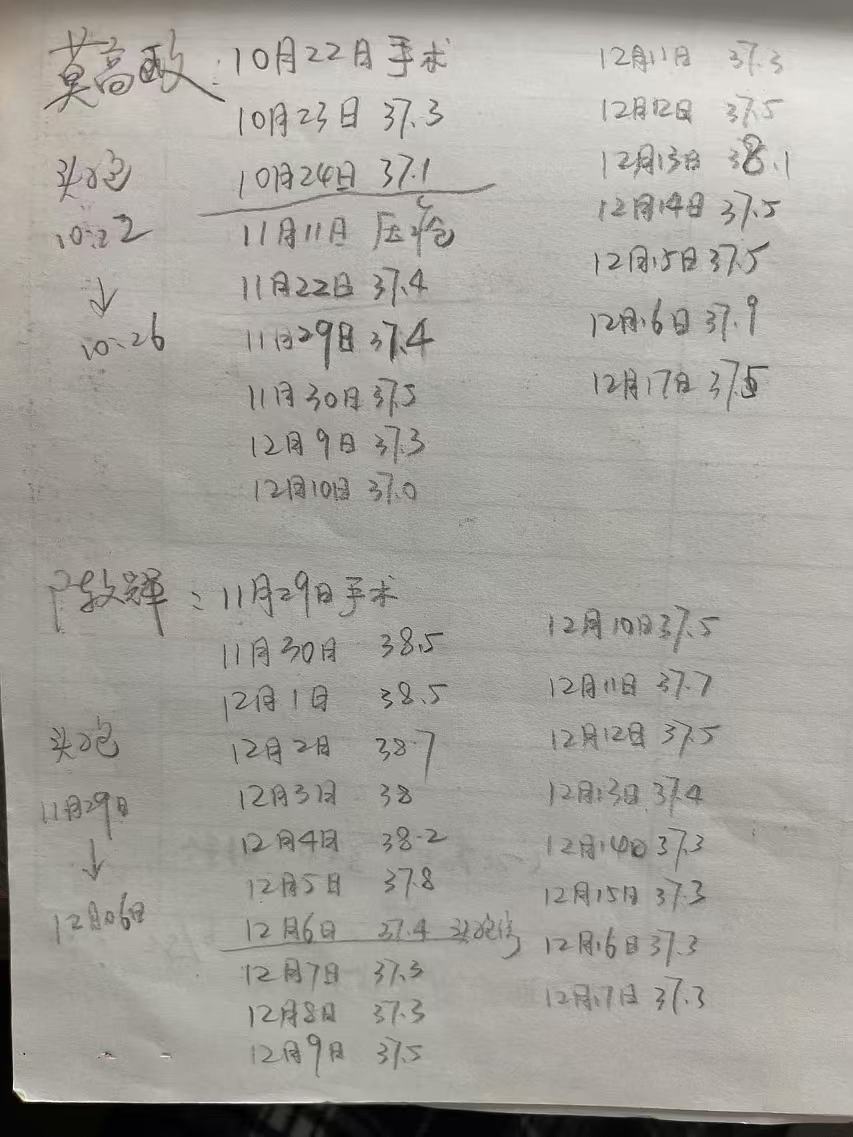 莫高酸:
10月22日 手术
10月23日 37.3
10月24日 37.1
11月11日 压疮
11月22日 37.4
11月29日 37.4
11月30日 37.5
12月9日 37.3
12月10日 37.0
头孢
10.22
↓
10.26
12月11日 37.3
12月12日 37.5
12月13日 38.1
12月14日 37.5
12月15日 37.5
12月16日 37.9
12月17日 37.5
敦辉:
11月29日手术
11月30日 38.5
12月1日 38.5
12月2日 38.7
12月3日 38
12月4日 38.2
12月5日 37.8
12月6日 37.4 头孢停
12月7日 37.3
12月8日 37.3
12月9日 37.5
头孢
11月29日
↓
12月06日
12月10日37.5
12月11日 37.7
12月12日 37.5
12月13日 37.4
12月14日 37.3
12月15日 37.3
12月16日 37.3
12月17日 37.3